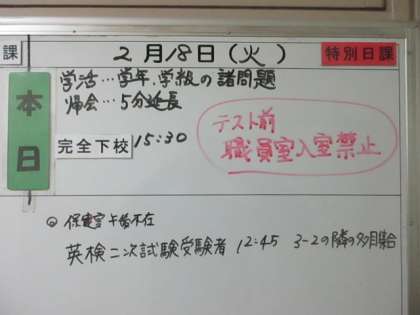 課
2月18日(火)
特別日課
本日
学活…学年.学級の諸問題
帰会…5分延長
完全下校 15:30
テスト前
職員室入室禁止
◎ 保健室 午後不在
英検二次試験受験者 12:45 3-2の隣の多目集合